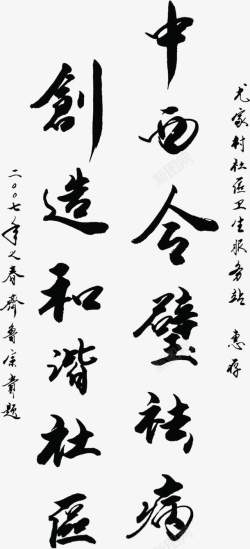 尤家村社区卫生服务站 惠存
中西合璧祛病
創造和谐社區
二〇〇七年之春齊魯宗貴题